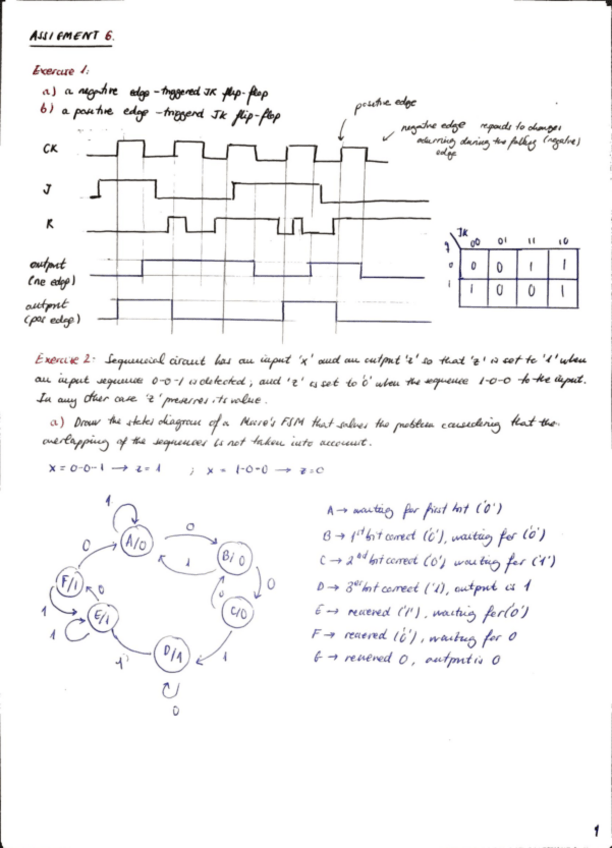 ASSIGMENT 6.
Exercise 1:
a) a negative edge-triggered JK flip-flop
b) a positive edge-triggerd JK flip-flop
positive edge
negative edge responds to changes
occurring during the falling (negative)
edge
CK
J
K
output
(ne edge)
output
(pos edge)
JK
q
00 01 11 10
0 0 0 1 1
1 1 0 0 1
Exercise 2: Sequencial circuit has an input 'x' and an output 'z' so that 'z' is set to '1' when
an input sequence 0-0-1 is detected, and 'z' is set to '0' when the sequence 1-0-0 to the input.
In any other case 'z' preserves its value.
a) Draw the states diagram of a Moore's FSM that solves the problem considering that the
overlapping of the sequences is not taken into account.
x = 0-0-1 → z = 1 ; x = 1-0-0 → z = 0
1
A/0
0
B/0
1
0
0
C/0
1
D/1
0
1
E/1
1
0
1
F/1
0
A → waiting for first bit ('0')
B → 1st bit correct ('0'), waiting for ('0')
C → 2nd bit correct ('0') waiting for ('1')
D → 3rd bit correct ('1), output is 1
E → received ('1'), waiting for ('0')
F → received ('0'), waiting for 0
G → received 0, output is 0
1